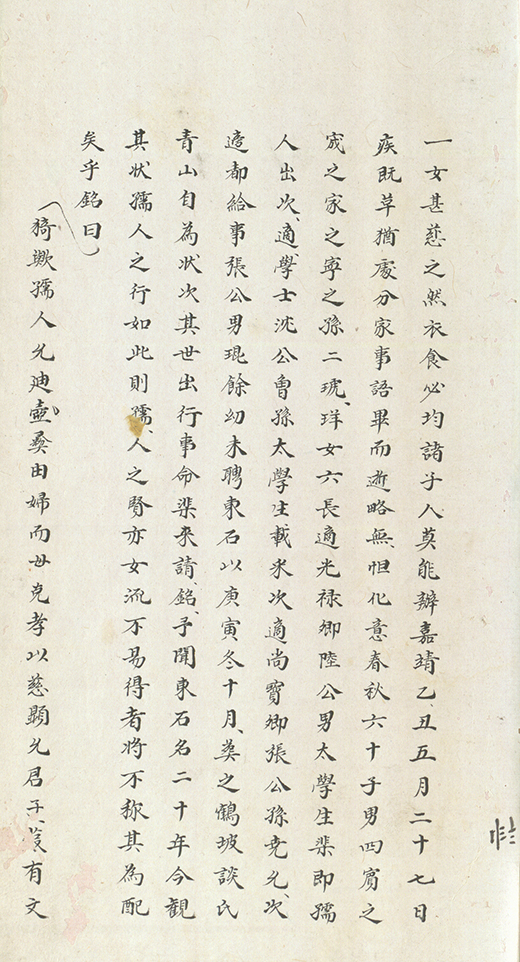 一女甚慈之然衣食必均諸子人莫能辦嘉靖乙丑五月二十七日
疾既草猶處分家事語畢而逝略無怛化意春秋六十子男四賓之
宬之家之寧之孫二琥女六長適光祿卿陸公男太學生即孺
人出次適學士沈公魯孫太學生載永次適尚寶卿張公孫堯允次
適都給事張公男琨餘幼未聘東石以庚寅冬十月葬之鶴坡談氏
青山自為狀次其世出行事命來請銘予聞東石名二十年今觀
其狀孺人之行如此則孺人之賢亦女流不易得者將不称其為配
矣乎銘曰
猗歟孺人允迪壼彜由婦而母克孝以慈顯允君子有文